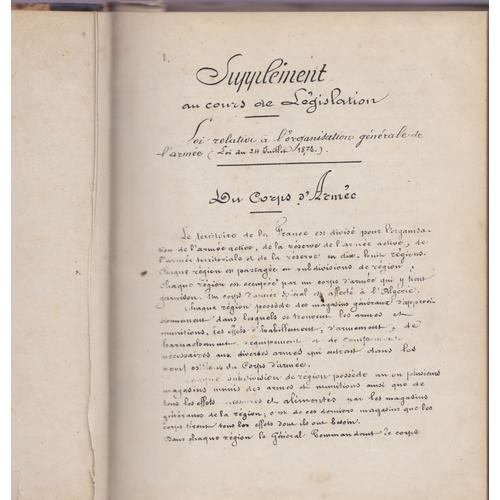 1.
Supplément
au cours de Législation
Loi relative à l'organisation générale de
l'armée (Loi du 24 Juillet 1873.).
Du Corps d'Armée
Le territoire de la France est divisé pour l'organisa-
tion de l'armée active, de la réserve de l'armée active, de
l'armée territoriale et de la réserve en dix-huit régions.
Chaque région est partagée en subdivisions de région.
Chaque région est occupée par un corps d'armée qui y tient
garnison. Un corps d'armée spécial est affecté à l'Algérie.
Chaque région possède des magasins généraux d'approvi-
sionnement dans lesquels se trouvent les armes et
munitions, les effets d'habillement, d'armement, de
harnachement, d'équipement et de campement
nécessaires aux diverses armes qui entrent dans les
du Corps d'armée.
Chaque subdivision de région possède un ou plusieurs
magasins munis des armes et munitions ainsi que de
tous les effets et alimentés par les magasins
généraux de la région; c'est de ces derniers magasins que les
corps tirent tous les effets dont ils ont besoin.
Dans chaque région le Général Commandant le corps